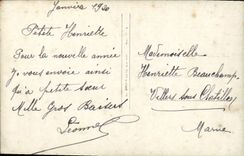 Janvier 1920
Petite Henriette
Pour la nouvelle année
je vous envoie ainsi
qu'a petite sœur
Mille Gros Baisers
Lionnel
Mademoiselle
Henriette Beauchamp
Villers sous Chatillon
Marne